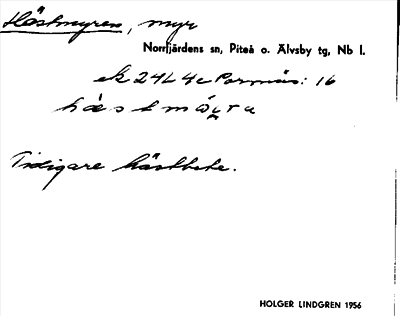 Hästmyren, myr
Norrfjärdens sn, Piteå o. Älvsby tg, Nb l.
ek 24L4c Pormäs: 16
Tidigare hästbete.
HOLGER LINDGREN 1956